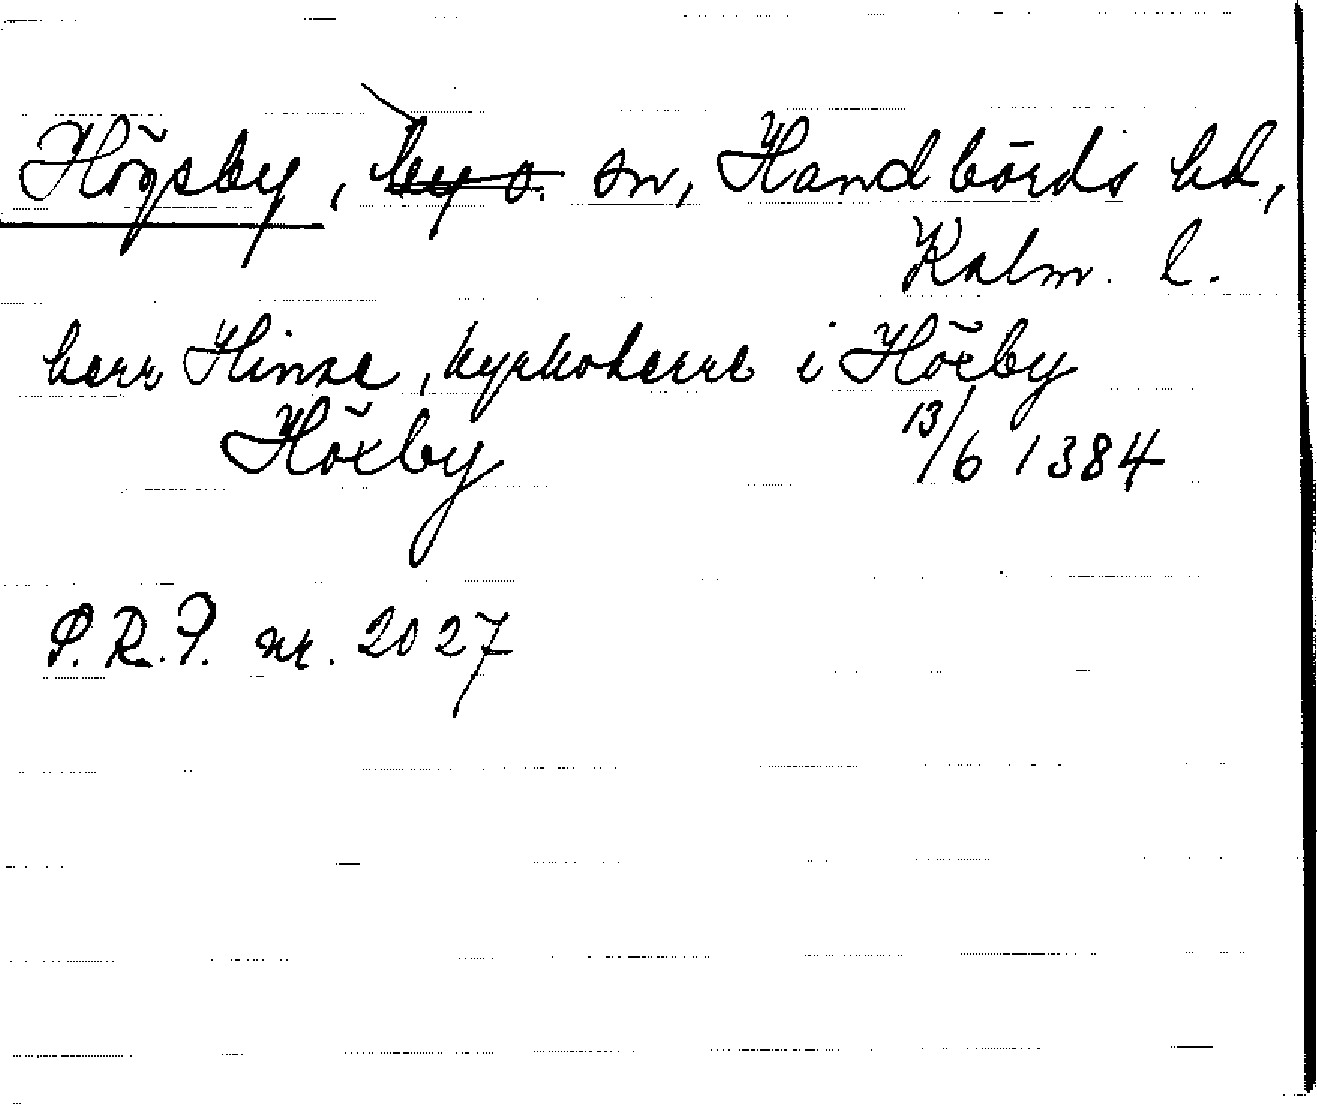 Högsby, by o. sn, Handbörds hd,
Kalm. l.
herr Hinse, kyrkoherre i Höxby
Höxby 13/6 1384
P.R.P. nr. 2027